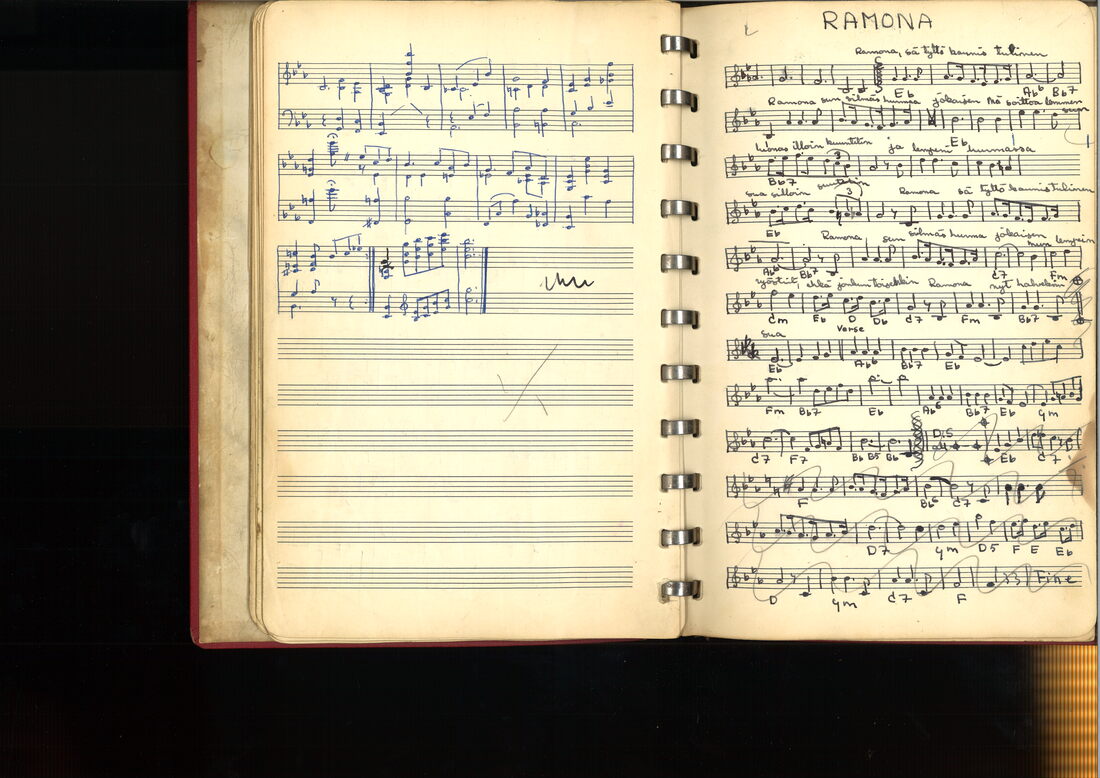 RAMONA
Ramona, sä tyttö kaunis tulinen
Eb Ab6 Bb7
Ramona sun silmäs hurmaa jokaisen Mä soittoa lemmen
sun
Eb
luonas illoin kuuntelin ja lempesi hurmassa
Bb7
sua silloin suutelin Ramona sä tyttö kaunis tulinen
3
Eb
Ramona sun silmäs hurmaa jokaisen
mun lempein
Ab6 Bb7 C7 Fm
ehkä jonkun toisenkin Ramona nyt halveksin
Cm Eb D Db C7 Fm Bb7
sua Verse
Eb Ab6 Bb7 Eb
Fm Bb7 Eb Ab6 Bb7 Eb Gm
D.S.
C7 F7 Bb B5 Bb Eb C7
F Bb6 C7
D7 Gm D5 F E Eb
Fine
D Gm C7 F